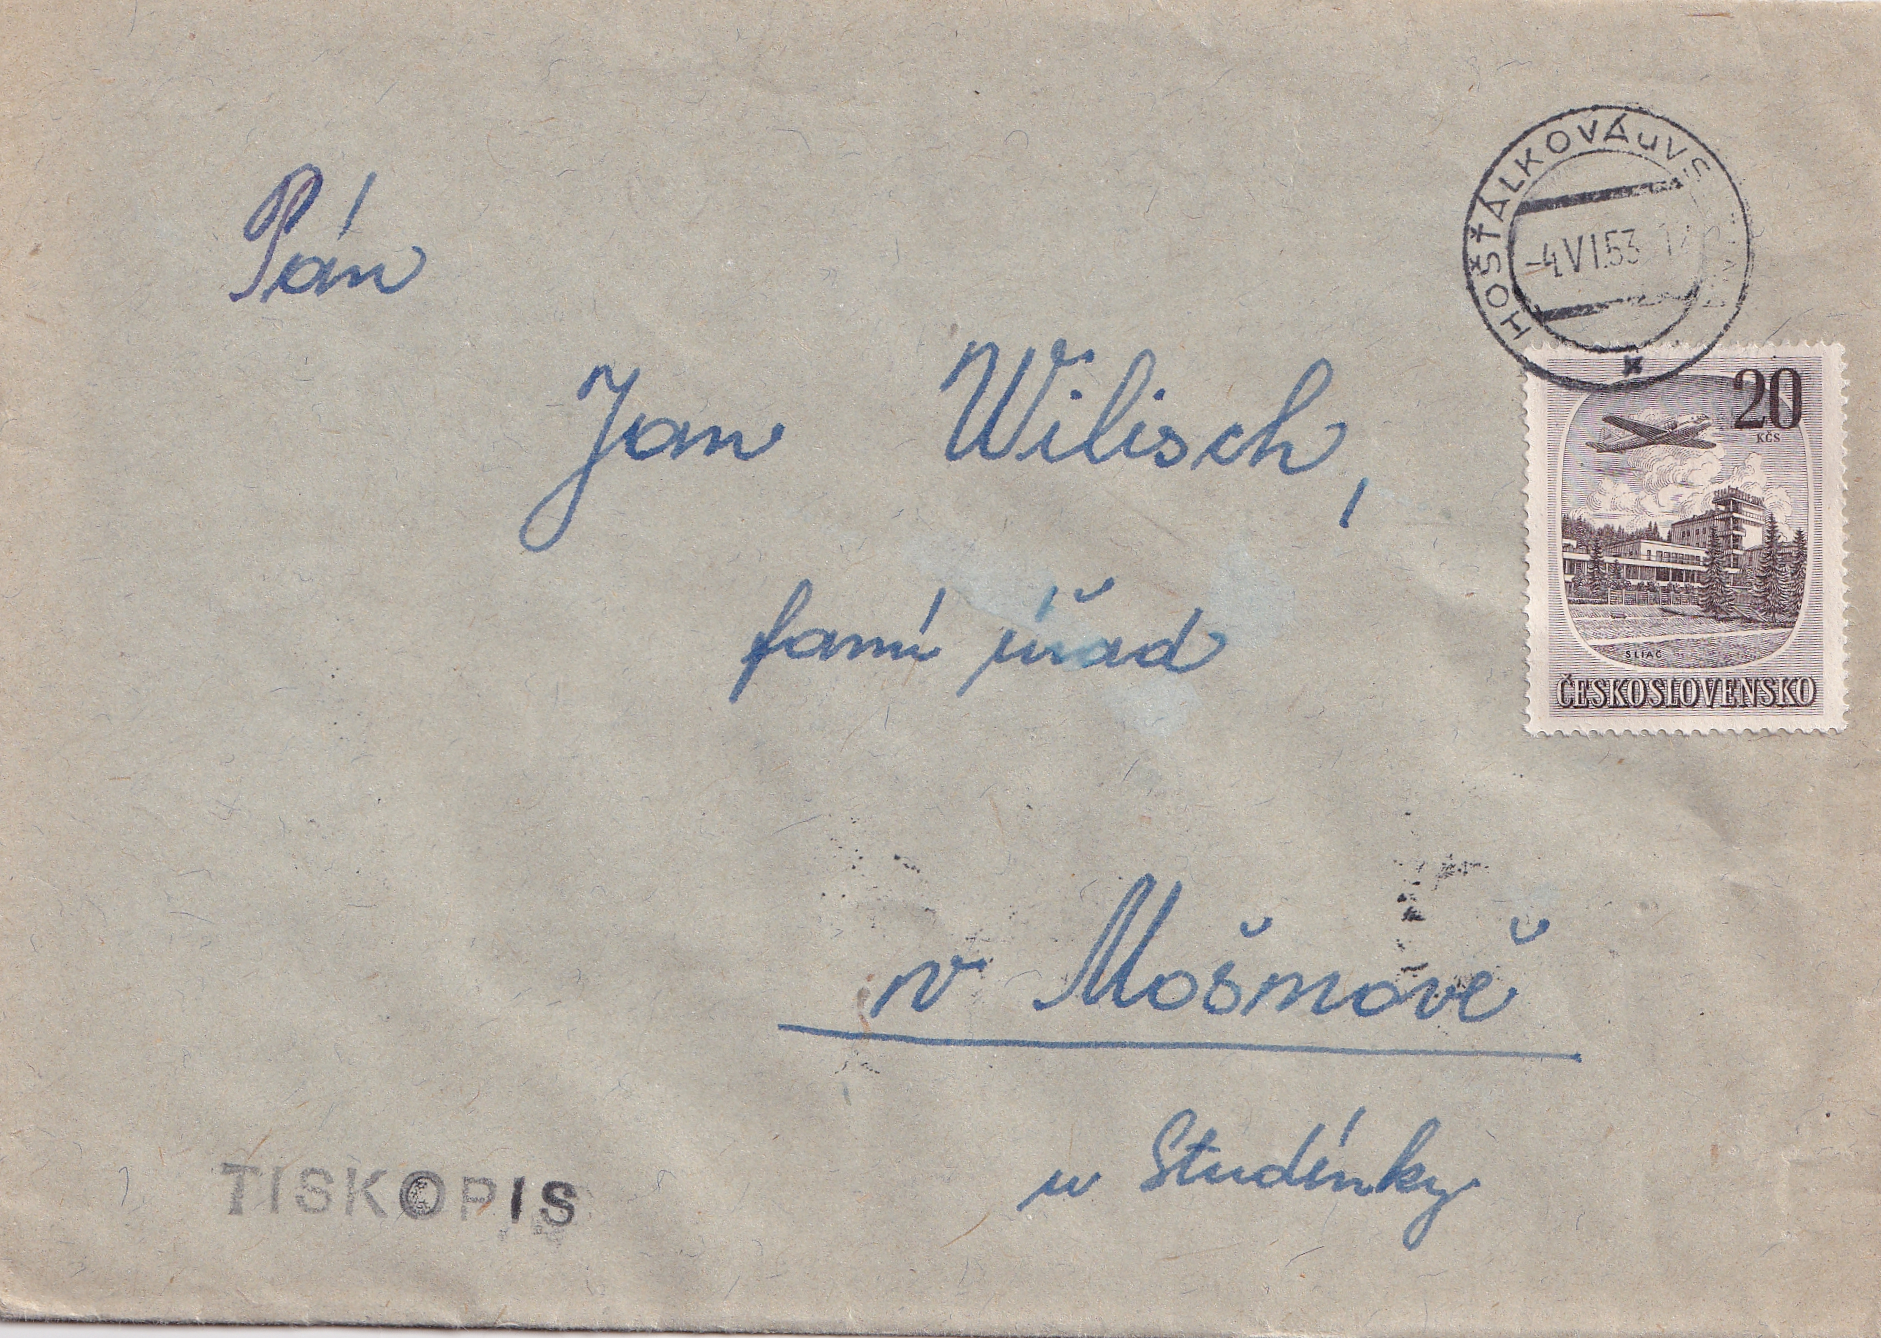 HOŠŤÁLKOVÁ u VS
-4.VI.53
20
KČS
SLIAČ
ČESKOSLOVENSKO
Pán
Jan Wilisch,
farní úřad
v Mošnově
u Studénky
TISKOPIS